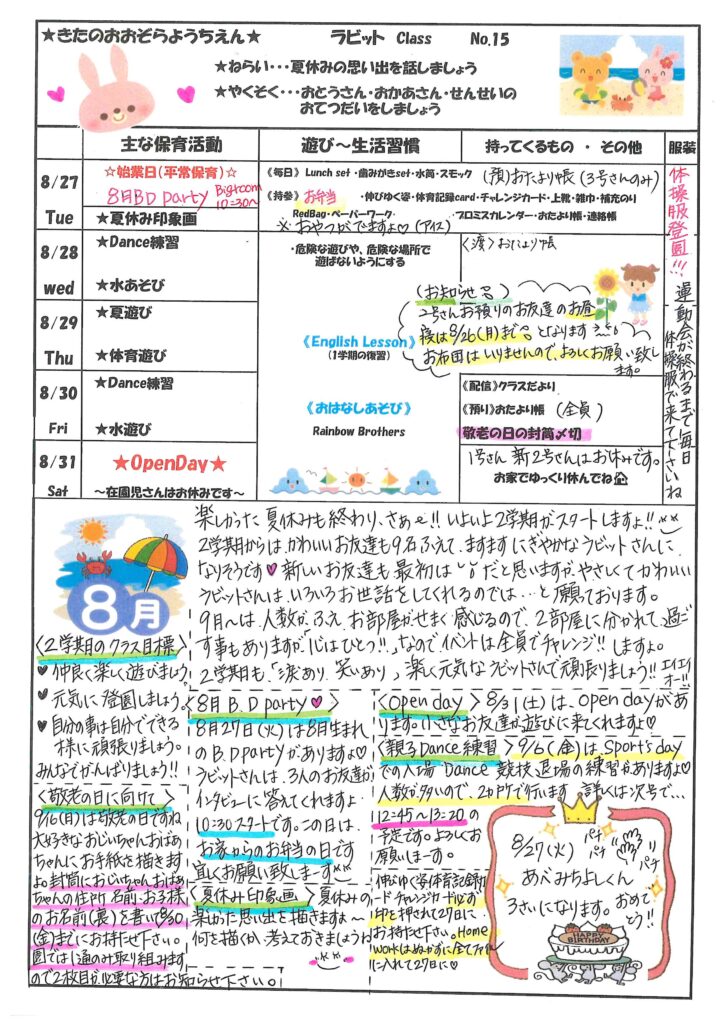 ★きたのおおぞらようちえん★
ラビット Class No.15
★ねらい・・・夏休みの思い出を話しましょう
★やくそく・・・おとうさん・おかあさん・せんせいの
おてつだいをしましょう
主な保育活動
遊び～生活習慣
持ってくるもの ・ その他
服装
8/27
Tue
☆始業日(平常保育)☆
8月BD Party Bigroom
10:30～
★夏休み印象画
《毎日》 Lunch set ・歯みがきset・水筒・スモック
(預)おたより帳 (3号さんのみ)
《持参》 お弁当 ・伸びゆく姿・体育記録card・チャレンジカード・上靴・雑巾・補充のり
RedBag・ペーパーワーク・ プロミスカレンダー・おたより帳・連絡帳
※おやつがでますよ♡(アイス)
体操服登園!!!
8/28
wed
★Dance練習
★水あそび
・危険な遊びや、危険な場所で
遊ばないようにする
〈渡〉おたより帳
8/29
Thu
★夏遊び
★体育遊び
《English Lesson》
(1学期の復習)
〈お知らせ〉
2号さんお預りのお友達のお昼
寝は8/26(月)まで となります
お布団はいりませんので、よろしくお願い致し
ます。
8/30
Fri
★Dance練習
★水遊び
《おはなしあそび》
Rainbow Brothers
《配信》クラスだより
《預り》おたより帳 (全員)
敬老の日の封筒〆切
8/31
Sat
★OpenDay★
～在園児さんはお休みです～
1号さん 新2号さんはお休みです。
お家でゆっくり休んでね
運動会が終わるまで毎日
体操服で来て下さいね
8月
楽しかった夏休みも終わり、さぁ～!! いよいよ2学期がスタートしますよ!!
2学期からは、かわいいお友達も9名ふえて、ますますにぎやかなラビットさんに
なりそうです♥新しいお友達も最初は だと思いますが、やさしくてかわいい
ラビットさんは、いろいろお世話をしてくれるのでは…と願っております。
9月～は、人数がふえお部屋がせまく感じるので、2部屋に分かれて過ご
す事もありますが「心はひとつ!!」なのでイベントは全員でチャレンジ!!しますよ。
2学期も、「涙あり、笑いあり」楽しく元気なラビットさんで頑張りましょう!! エイエイ
オー!!
〈2学期のクラス目標〉
♥仲良く楽しく遊びましょう
♥元気に登園しましょう
♥自分の事は自分でできる
様に頑張りましょう。
みんなでがんばりましょう!!
〈敬老の日に向けて〉
9/16(月)は敬老の日ですね
大好きなおじいちゃんおばあ
ちゃんにお手紙を描きます
よ。封筒におじいちゃんおばあ
ちゃんの住所 名前・お子様
のお名前(裏)を書いて8/30
(金)までにお持た下さい。
園では1通のみ取り組みます
ので2枚目が必要な方はお知らせ下さい。
〈8月B.D party♥〉
8月27日(火)は8月生まれ
のB.D partyがありますよ♡
ラビットさんは、3人のお友達が
インタビューに答えてくれますよ
10:30スタートです。この日は、
お家からのお弁当の日です
宜しくお願い致しまーす
〈夏休み印象画〉夏休みの
楽しかった思い出を描きますよ～
何を描くか、考えておきましょうね
〈Open day〉8/31(土)は、open dayがあ
ります。小さなお友達が遊びに来てくれますよ♡
〈親子Dance練習〉9/6(金)は、Sports day
での入場 Dance 競技、退場の練習がありますよ♡
人数が多いので、2か所で行います。詳しくは次号で…
12:45～13:20の
予定です。よろしくお
願いしまーす。
伸びゆく姿体育記録カ
ード チャレンジカードは必ず
印を押されて27日に
お持た下さい。Home
workはぬかずに全てファイル
に入れて27日に♥
8/27(火) パチパチパチ
あべみちよしくん
3さいになります。おめで
とう!!
HAPPY
BIRTHDAY